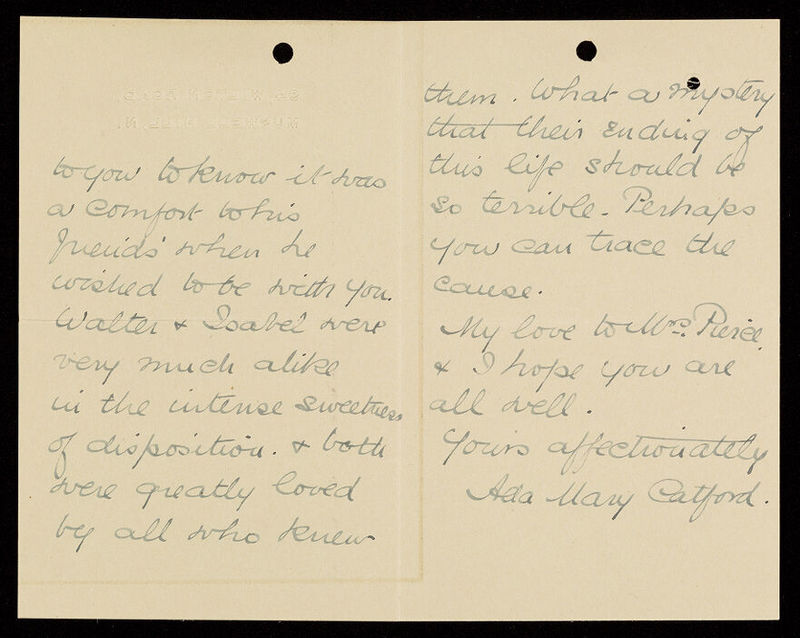 to you to know it was
a comfort to his
friends' when he
wished to be with you.
Walter & Isabel were
very much alike
in the intense sweetness
of disposition. & both
were greatly loved
by all who knew
them. What a mystery
that their ending of
this life should be
so terrible. Perhaps
you can trace the
cause.
My love to Mrs. Pierce
& I hope you are
all well.
Yours affectionately
Ada Mary Catford.